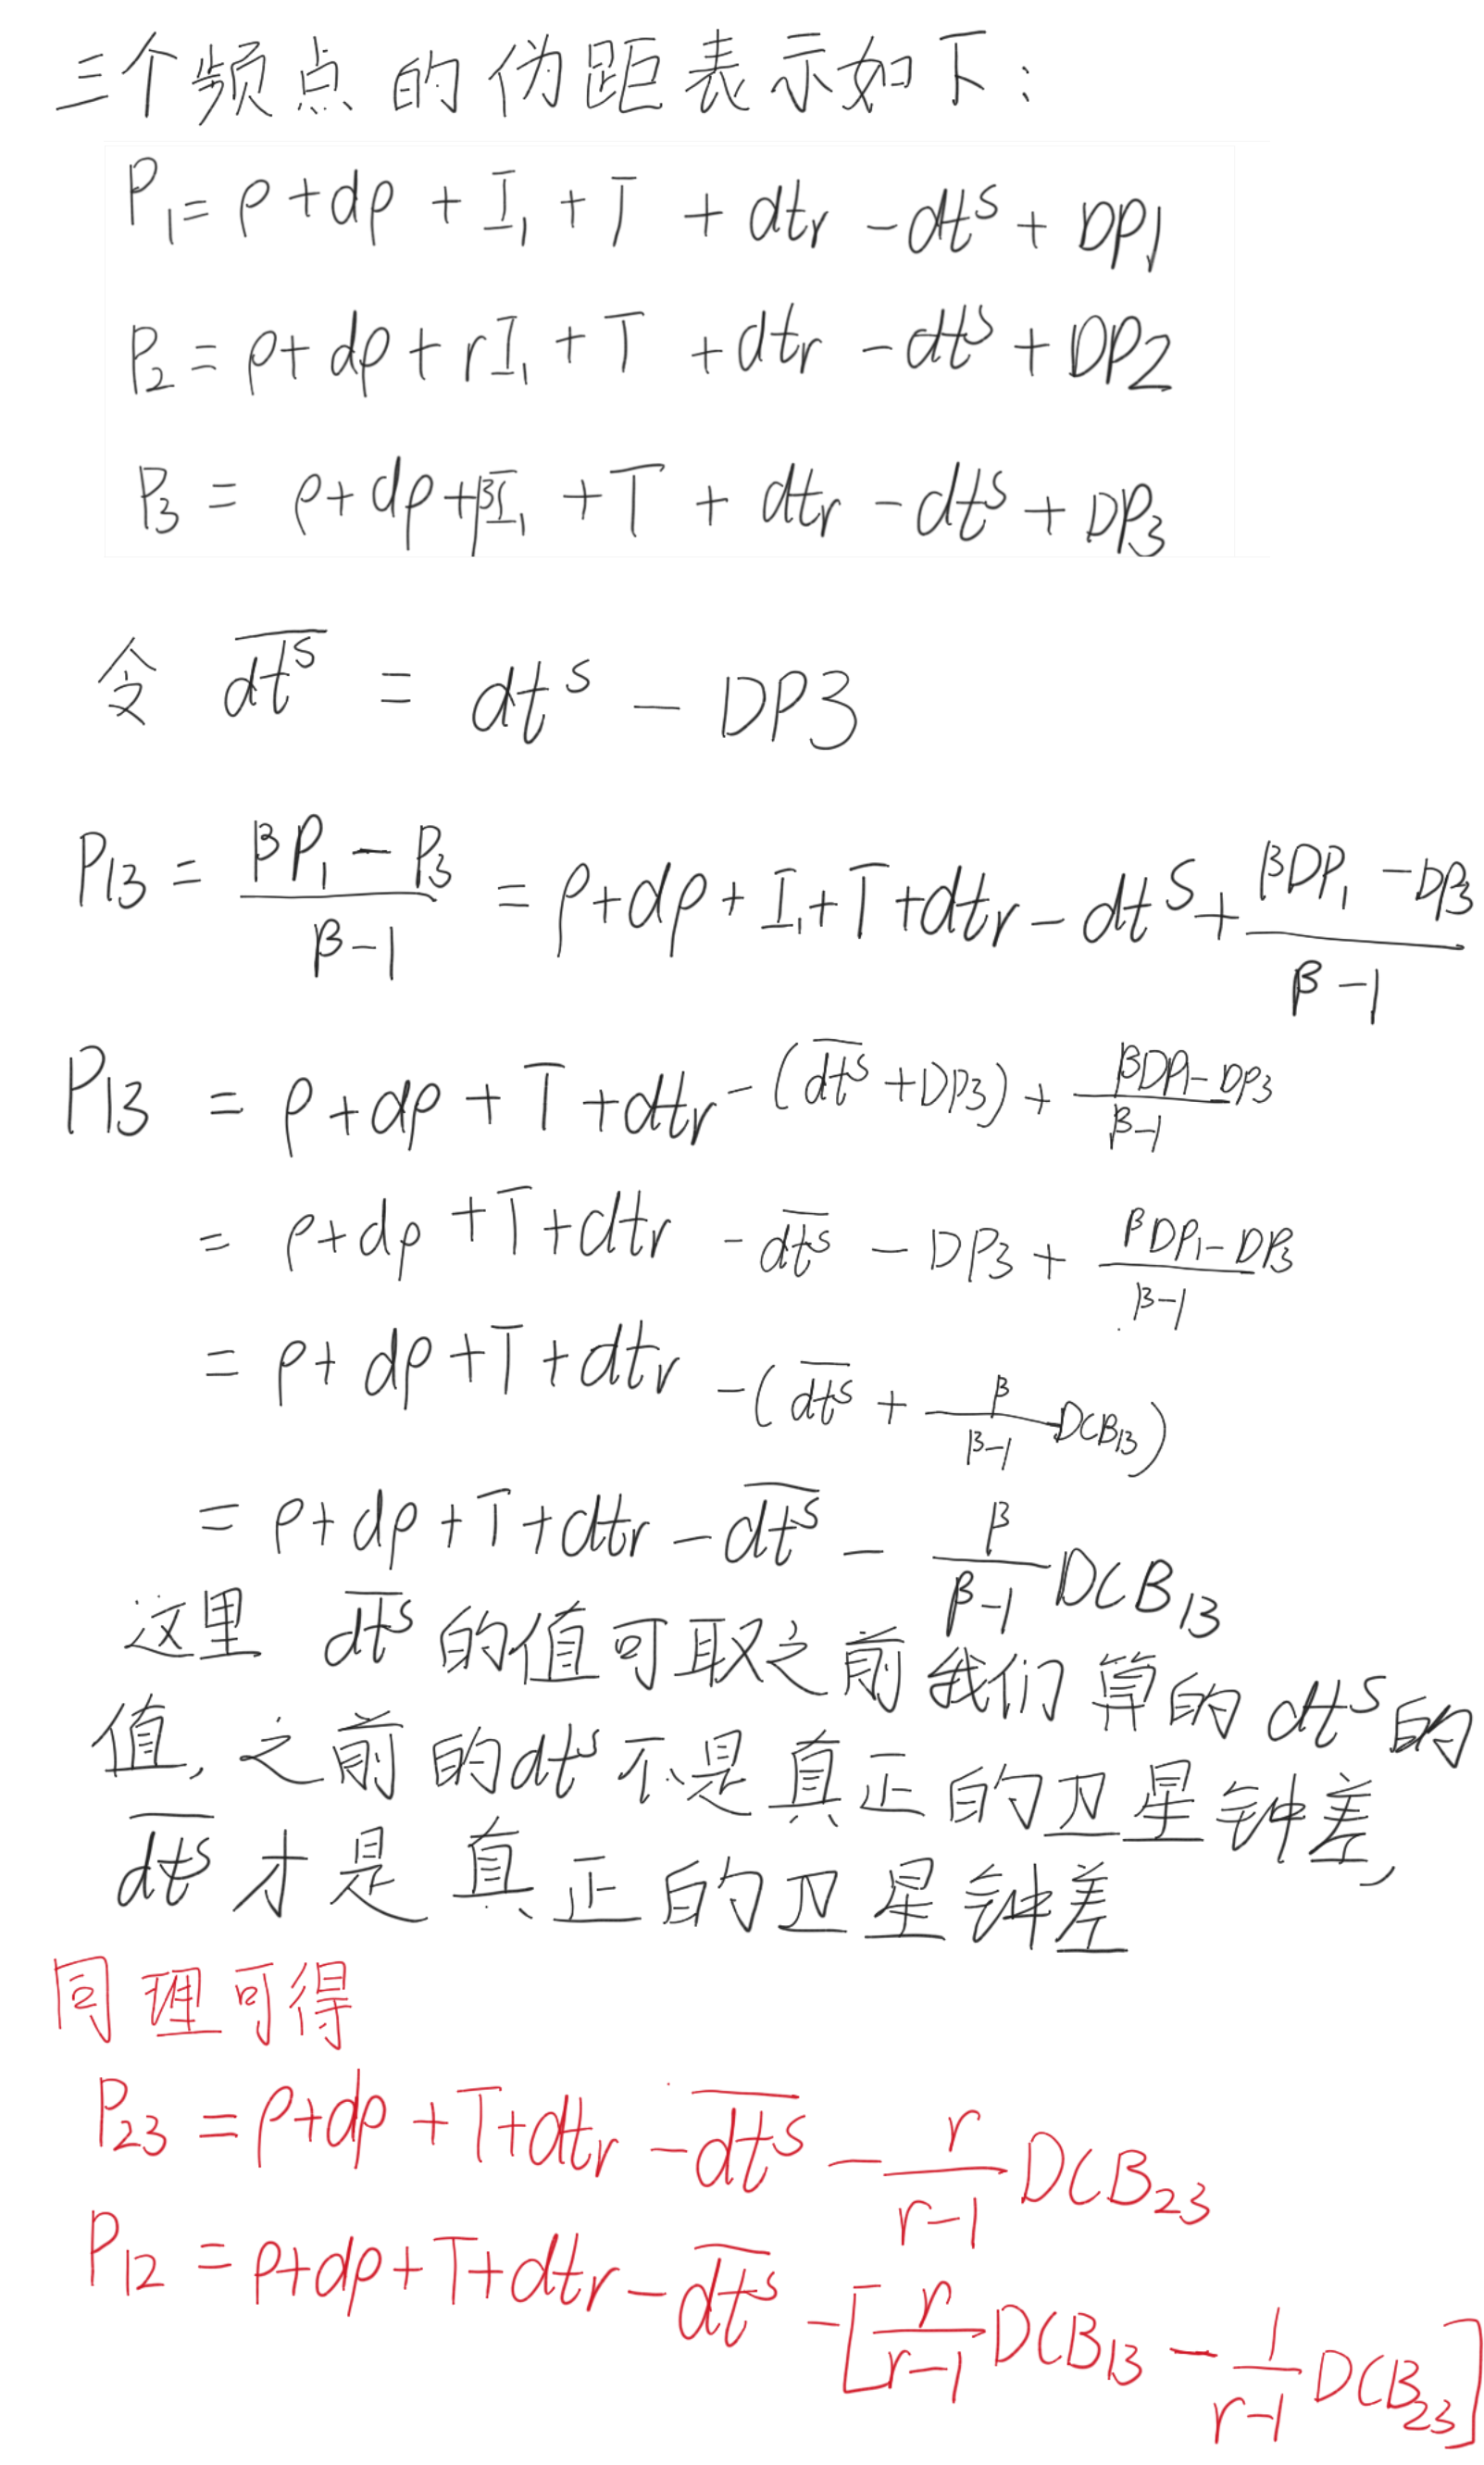 三个频点的伪距表示如下：
P₁ = ρ + dρ + I₁ + T + dtᵣ - dtˢ + DP1
P₂ = ρ + dρ + rI₁ + T + dtᵣ - dtˢ + DP2
P₃ = ρ + dρ + βI₁ + T + dtᵣ - dtˢ + DP3
令 \overline{dtˢ} = dtˢ - DP3
P₁₃ = (βP₁ - P₃)/(β-1) = ρ + dρ + I₁ + T + dtᵣ - dtˢ + (βDP₁ - DP₃)/(β-1)
P₁₃ = ρ + dρ + T + dtᵣ - (\overline{dtˢ} + DP3) + (βDP1 - DP3)/(β-1)
= ρ + dρ + T + dtᵣ - \overline{dtˢ} - DP3 + (βDP₁ - DP3)/(β-1)
= ρ + dρ + T + dtᵣ - (\overline{dtˢ} + β/(β-1) DCB₁₃)
= ρ + dρ + T + dtᵣ - \overline{dtˢ} - β/(β-1) DCB₁₃
这里 \overline{dtˢ} 的值可取之前我们算的 dtˢ 的
值，之前的 dtˢ 不是真正的卫星钟差，
\overline{dtˢ} 才是真正的卫星钟差
同理可得
P₂₃ = ρ + dρ + T + dtᵣ - \overline{dtˢ} - r/(r-1) DCB₂₃
P₁₂ = ρ + dρ + T + dtᵣ - \overline{dtˢ} - [r/(r-1) DCB₁₃ - 1/(r-1) DCB₂₃]